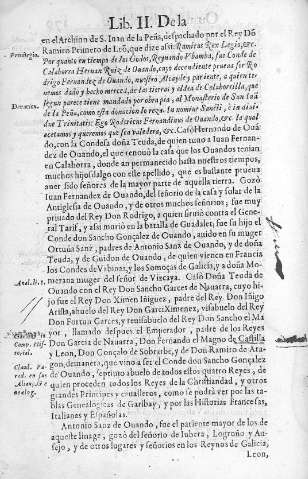 Lib. II. De la
en el Archiuo de S. Iuan de la Peña, despachado por el Rey Dō
Ramiro Primero de Leō, que dize assi: Ramirus Rex Legis, &c.
Priuilegio.
Por quanto en tiempo de los Godos, Reynando Vbamba, fue Conde de
Calahorra Hernan Ruiz de Ouando, cuyo decendiente prueua ser Ro
drigo Fernandez de Ouando, nuestro Alcayde, y pariente, a quien te-
nemos dado y hecho merced, de las tierras y aldea de Calahorrilla, que
Donacion.
segun parece tiene mandado por obra pia, al Monasterio de San Iuā
de la Peña, como esta donacion lo reza. In nomine Sanctæ, & indi-
duæ Trinitatis: Ego Rodericus Fernandiuus de Ouando, &c. la qual
acetamos y queremos que sea valedera, &c. Casò Hernando de Ouā-
do, con la Condesa doña Teuda, de quien tuuo a Iuan Fernan-
dez de Ouando, el que renouò la casa que los Ouandos tenian
en Calahorra, donde an permanecido hasta nuestros tiempos,
muchos hijosdalgo con este apellido, que es bastante prueua
auer sido señores de la mayor parte de aquella tierra. Gozò
Iuan Fernandez de Ouando, del señorio de la casa y solar de la
Antiglesia de Ouando, y de otros muchos señorios, fue muy
priuado del Rey Don Rodrigo, a quien siruiò contra el Gene-
ral Tarif, y assi muriò en la batalla de Guadalete, fue su hijo el
Conde don Sancho Gonçalez de Ouando, auido en su muger
Ortuñda Sanz, padres de Antonio Sanz de Ouando, y de doña
Teuda, y de Guidon de Ouando, de quien vienen en Francia
los Condes de Vabinas, y los Somoças de Galicia, y a doña Mo-
merana muger del señor de Vizcaya. Casò Doña Teuda de
Ouando con el Rey Don Sancho Garces de Nauarra, cuyo hi-
jo fue el Rey Don Ximen Iñiguez, padre del Rey Don Iñigo
Arista, abuelo del Rey Don Garci Ximenez, visabuelo del Rey
Don Fortun Garces, y rebisabuelo del Rey Don Sancho el Ma
yor, llamado despues el Emperador, padre de los Reyes
Don Garcia de Nauarra, Don Fernando el Magno de Castilla
y Leon, Don Gonçalo de Sobrarbe, y de Don Ramiro de Ara-
gon, demanera, que vino a ser el Conde don Sancho Gonçalez
de Ouando, septimo abuelo de todos estos quatro Reyes, de
quien proceden todos los Reyes de la Christiandad, y otros
grandes Principes y caualleros, como se podrà ver por las ta-
blas Genealogicas de Garibay, y por las Historias Francesas,
Italianas y Españolas.
Antonio Sanz de Ouando, fue el pariente mayor de los de
aqueste linage, gozò del señorio de Iubera, Logroño y Au-
sejo, y de otros lugares y señorios en los Reynos de Galicia,
Leon,